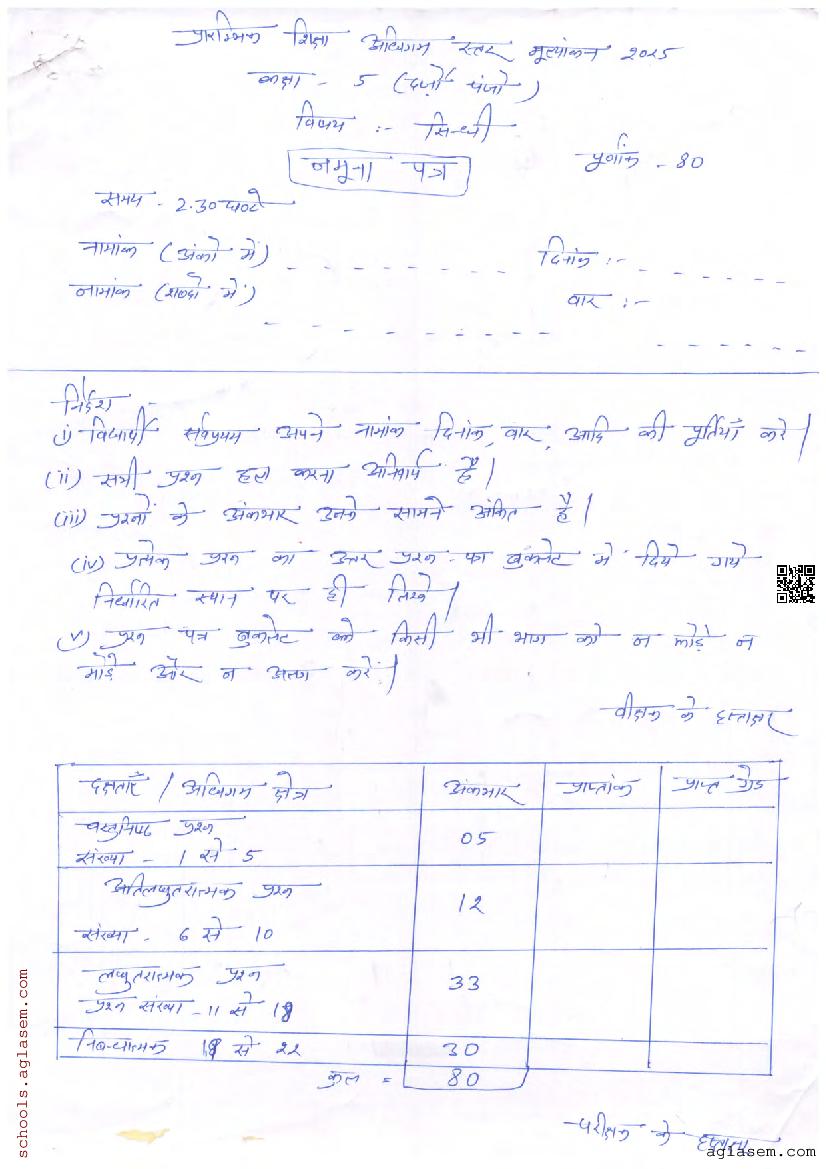 प्रारम्भिक शिक्षा अधिगम स्तर मूल्यांकन २०२5
कक्षा - 5 (दर्जो पंजो)
विषय :- सिन्धी
नमूना पत्र
पूर्णांक - 80
समय - 2.30 घण्टे
नामांक (अंको में)
दिनांक :-
नामांक (शब्दो में)
वार :-
निर्देश -
(i) विद्यार्थी सर्वप्रथम अपने नामांक दिनांक, वार, आदि की पूर्तियाँ करे |
(ii) सभी प्रश्न हल करना अनिवार्य है |
(iii) प्रश्नों के अंकभार उनके सामने अंकित है |
(iv) प्रत्येक प्रश्न का उत्तर प्रश्न का बुकलेट मे दिये गये
निर्धारित स्थान पर ही लिखे |
(v) प्रश्न पत्र बुकलेट को किसी भी भाग को न तोड़े न
मोड़े और न अलग करें |
वीक्षक के हस्ताक्षर
दक्षताएँ / अधिगम क्षेत्र अंकभार प्राप्तांक प्राप्त ग्रेड
वस्तुनिष्ठ प्रश्न
संख्या - 1 से 5 05
अतिलघुतरात्मक प्रश्न
संख्या - 6 से 10 12
लघुतरात्मक प्रश्न
प्रश्न संख्या - 11 से 18 33
निबन्धात्मक से २२ 30
कुल = 80
परीक्षक के
schools.aglasem.com
aglasem.com